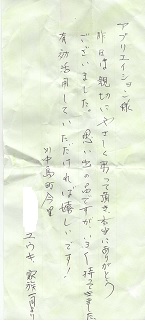 アプリエイション様
昨日は親切にやさしく買って頂き、本当にありがとう
ございました。思い出の品ですが、ヨク持てきました
有効活用していただければ嬉しいです!
川中島町今里
ユウキ、家族一同より